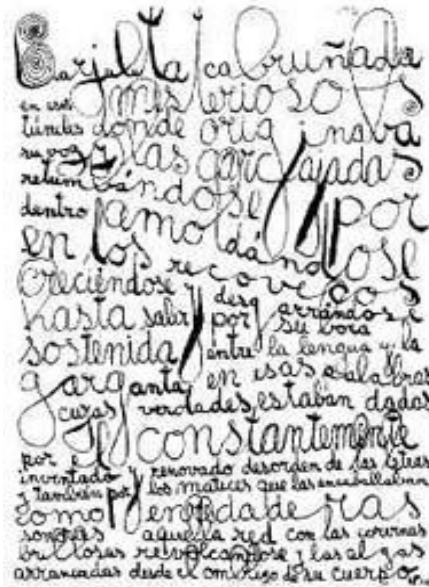 Barjaluta cabruñada
en esos misteriosos
túneles donde originaba
su voz y las garcajadas
retumbándose y por
dentro amoldándose
en los recovecos
creciéndose y desgarrándose
hasta salir por su boca
sostenida entre la lengua y la
garganta en esas palabras
cuyas verdades, estaban dadas
constantemente
por el
inventado y renovado desorden de las letras
y también por los matices que las encabellaban
como enredaderas
sonoras aquella red con las
brillosas revolcándose y las algas
arrancadas desde el ombligo de su cuerpo